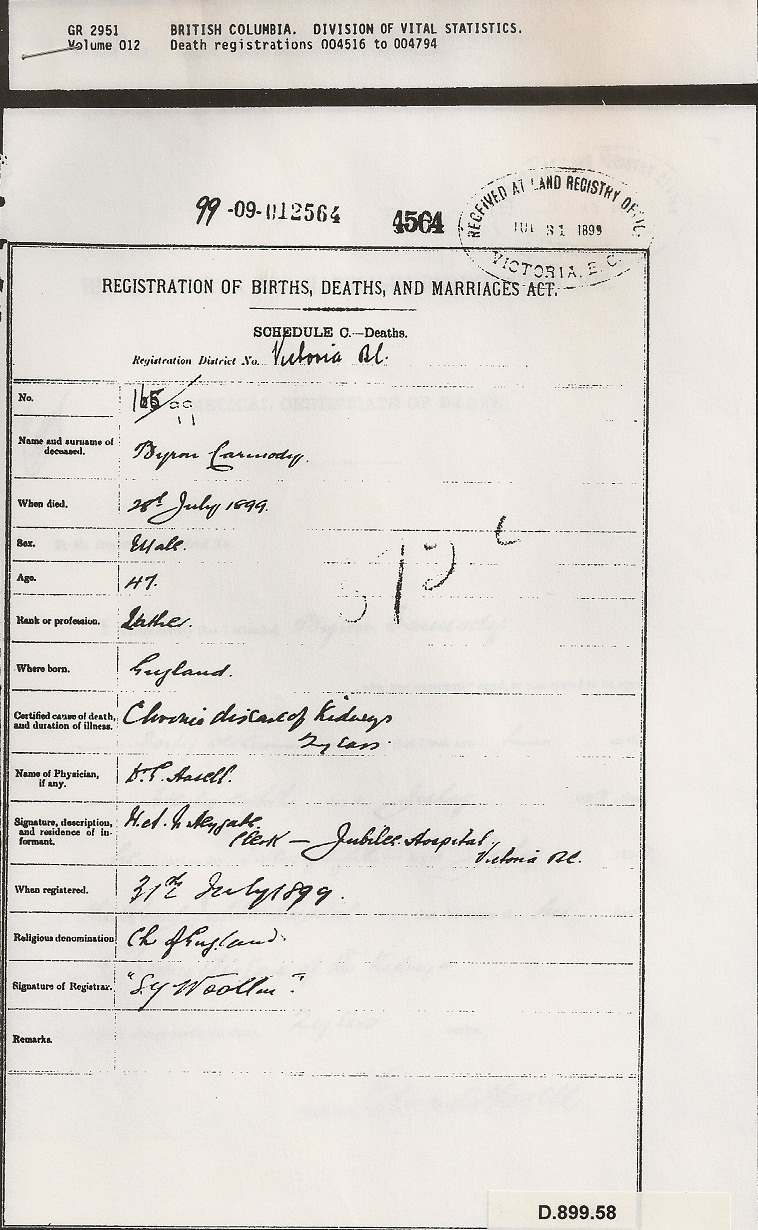 GR 2951 BRITISH COLUMBIA. DIVISION OF VITAL STATISTICS.
Volume 012 Death registrations 004516 to 004794
99-09-012564 4564
RECEIVED AT LAND REGISTRY OFFICE
JUL 31 1899
VICTORIA, B.C.
REGISTRATION OF BIRTHS, DEATHS, AND MARRIAGES ACT.
SCHEDULE C.—Deaths.
Registration District No. Victoria B.C.
No. 165
Name and surname of deceased. Byron Carmody.
When died. 28th July 1899.
Sex. Male.
Age. 47.
Rank or profession. Lather.
Where born. England.
Certified cause of death, and duration of illness. Chronic disease of Kidneys
2 years.
Name of Physician, if any. Dr. E. Hasell.
Signature, description, and residence of informant.
Clerk — Jubilee Hospital,
Victoria B.C.
When registered. 31st July 1899.
Religious denomination Ch of England.
Signature of Registrar. "S.Y Woolton".
Remarks.
D.899.58